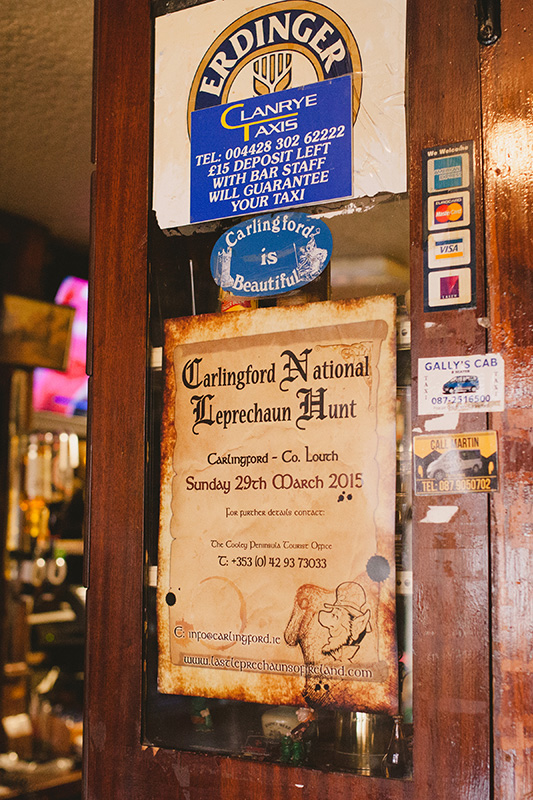 ERDINGER
CLANRYE
TAXIS
TEL: 004428 302 62222
£15 DEPOSIT LEFT
WITH BAR STAFF
WILL GUARANTEE
YOUR TAXI
Carlingford
is
Beautiful
We Welcome
EUROCARD
MasterCard
VISA
LASER
Carlingford National
Leprechaun Hunt
Carlingford - Co. Louth
Sunday 29th March 2015
For further details contact:
The Cooley Peninsula Tourist Office
T: +353 (0) 42 93 73033
E: info@carlingford.ie
www.lastleprechaunsofireland.com
GALLY'S CAB
TAXI
TAXI
087-2516500
CALL MARTIN
TEL: 087 9050702